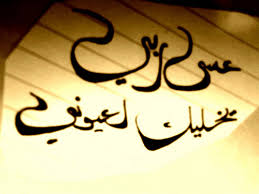 عسى ربي
يخليك لعيوني